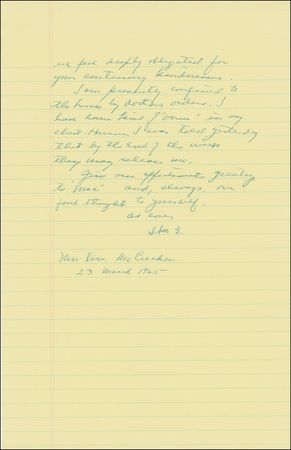 we feel deeply obligated for
your continuing kindnesses.
I am presently confined to
the house by doctors orders. I
have some kind of "virus" in my
chest. However, I was told yesterday
that by the end of the week
they may release me.
Give our affectionate greeting
to "Mac" and, always, our
fond thought to yourself.
as ever
Ike E
Mrs. Vera McCracken
23 March 1965